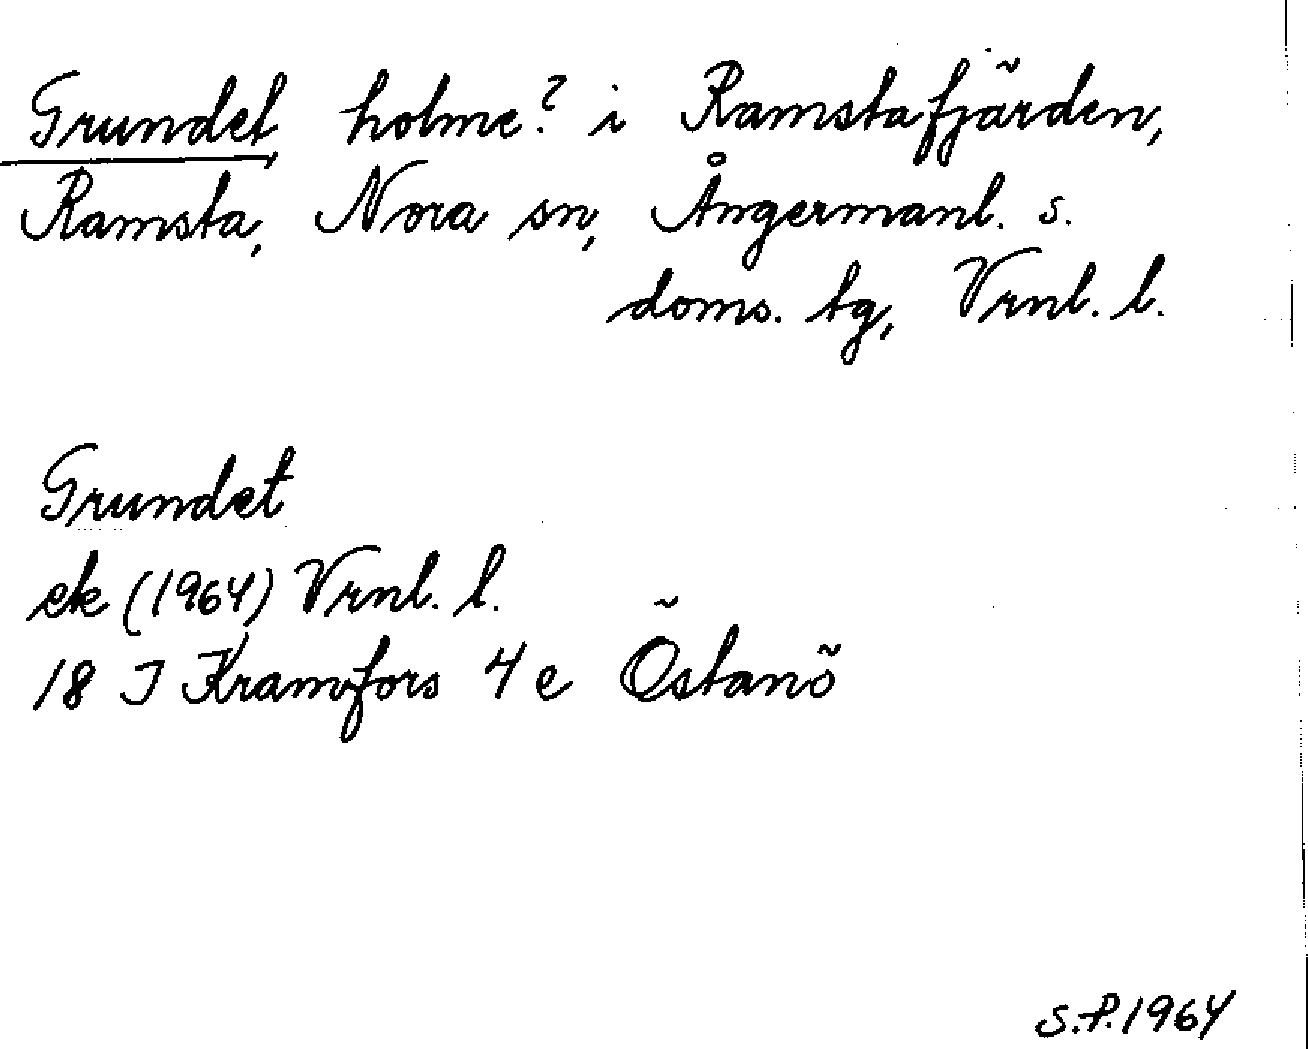 Grundet, holme? i Ramstafjärden,
Ramsta, Nora sn, Ångermanl. s.
doms. tg, Vrnl. l.
Grundet
ek (1964) Vrnl. l.
18 J Kramfors 4 e Östanö
S.P. 1964